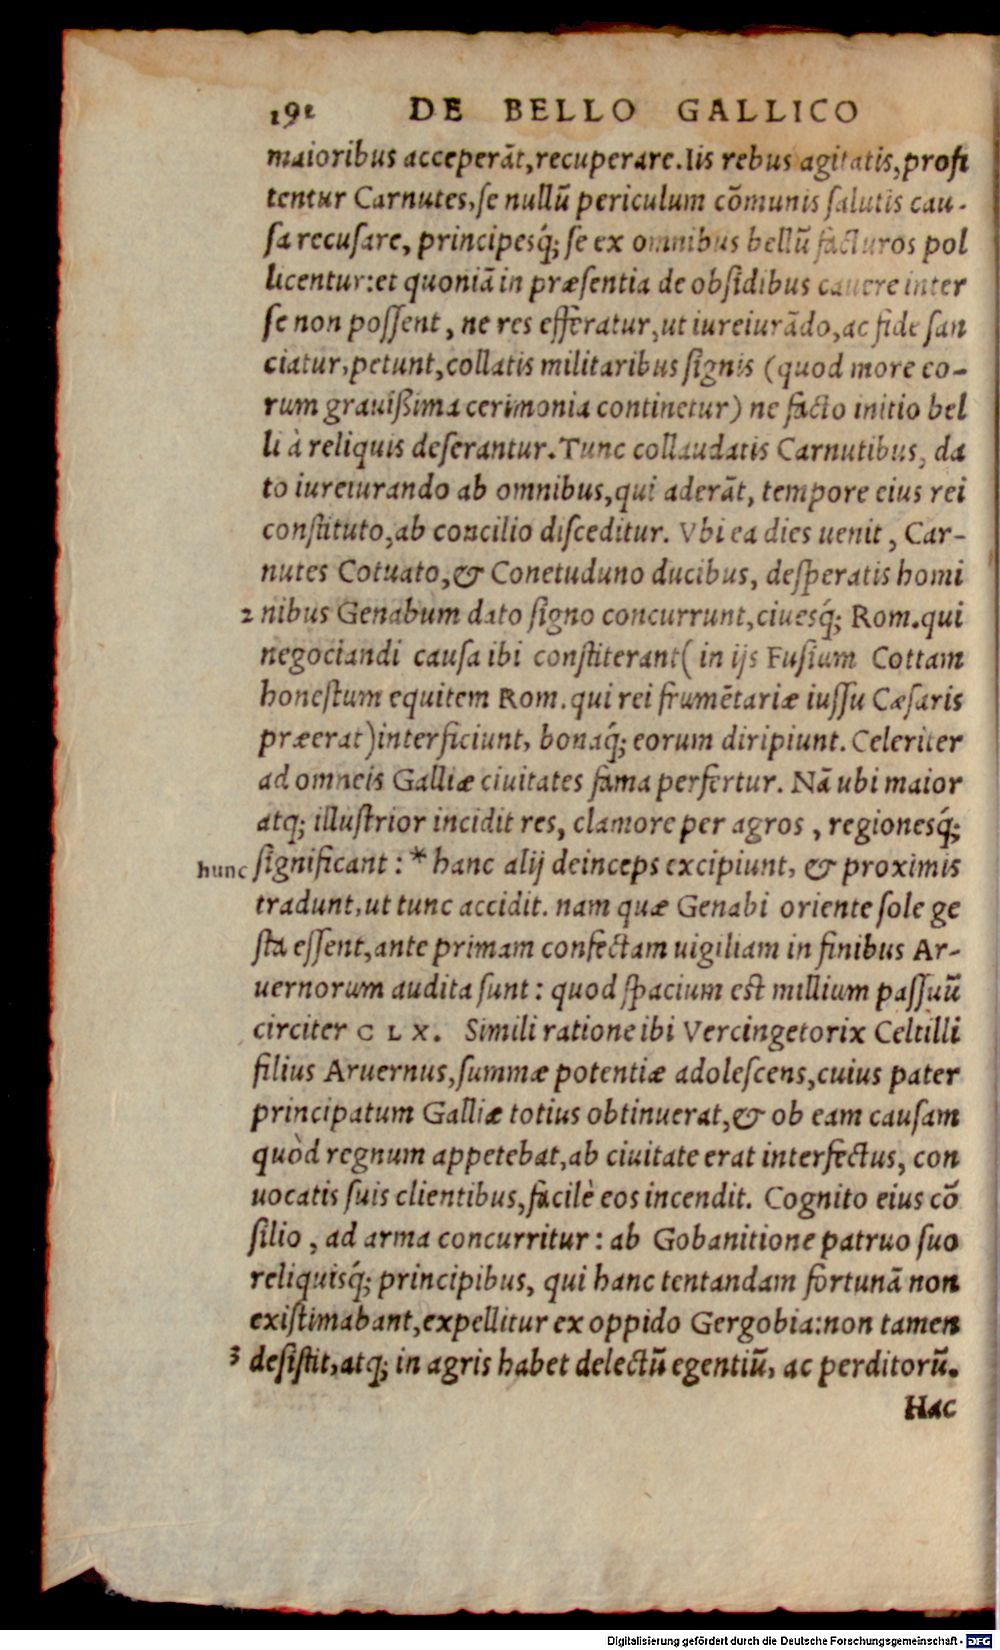 192 DE BELLO GALLICO
maioribus acceperãt, recuperare. Iis rebus agitatis, profi
tentur Carnutes, se nullũ periculum cõmunis salutis cau-
sa recusare, principesq́; se ex omnibus bellũ facturos pol
licentur: et quoniã in præsentia de obsidibus cauere inter
se non possent, ne res efferatur, ut iureiurãdo, ac fide san
ciatur, petunt, collatis militaribus signis (quod more eo-
rum grauißima cerimonia continetur) ne facto initio bel
li à reliquis deserantur. Tunc collaudatis Carnutibus, da
to iureiurando ab omnibus, qui aderãt, tempore eius rei
constituto, ab concilio disceditur. Vbi ea dies uenit, Car-
nutes Cotuato, & Conetuduno ducibus, desperatis homi
2 nibus Genabum dato signo concurrunt, ciuesq́; Rom. qui
negociandi causa ibi constiterant (in ijs Fusium Cottam
honestum equitem Rom. qui rei frumẽtariæ iussu Cæsaris
præerat) interficiunt, bonaq́; eorum diripiunt. Celeriter
ad omneis Galliæ ciuitates fama perfertur. Nã ubi maior
atq; illustrior incidit res, clamore per agros, regionesq́;
hunc significant: * hanc alij deinceps excipiunt, & proximis
tradunt, ut tunc accidit. nam quæ Genabi oriente sole ge
sta essent, ante primam confectam uigiliam in finibus Ar-
uernorum audita sunt: quod spacium est millium passuũ
circiter C L X. Simili ratione ibi Vercingetorix Celtilli
filius Aruernus, summæ potentiæ adolescens, cuius pater
principatum Galliæ totius obtinuerat, & ob eam causam
quòd regnum appetebat, ab ciuitate erat interfectus, con
uocatis suis clientibus, facilè eos incendit. Cognito eius cõ
silio, ad arma concurritur: ab Gobanitione patruo suo
reliquisq́; principibus, qui hanc tentandam fortunã non
existimabant, expellitur ex oppido Gergobia: non tamen
3 desistit, atq; in agris habet delectũ egentiũ, ac perditorũ.
Hac
Digitalisierung gefördert durch die Deutsche Forschungsgemeinschaft - DFG